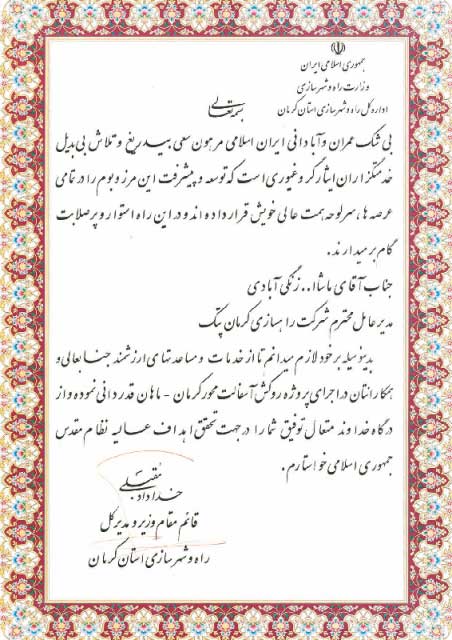 جمهوری اسلامی ایران
وزارت راه و شهرسازی
اداره کل راه و شهرسازی استان کرمان
بسمه تعالی
بی شک عمران و آبادانی ایران اسلامی مرهون سعی بیدریغ و تلاش بی بدیل
خدمتگزاران ایثارگر و غیوری است که توسعه و پیشرفت این مرز و بوم را در تمامی
عرصه ها، سرلوحه همت عالی خویش قرار داده اند و در این راه استوار و پرصلابت
گام بر میدارند.
جناب آقای ماشاا... زنگی آبادی
مدیرعامل محترم شرکت راهسازی کرمان پیک
بدینوسیله بر خود لازم میدانم تا از خدمات و مساعدتهای ارزشمند جنابعالی و
همکارانتان در اجرای پروژه روکش آسفالت محور کرمان - ماهان قدردانی نموده و از
درگاه خداوند متعال توفیق شما را در جهت تحقق اهداف عالیه نظام مقدس
جمهوری اسلامی خواستارم.
خداداد مقبلی
قائم مقام وزیر و مدیرکل
راه و شهرسازی استان کرمان